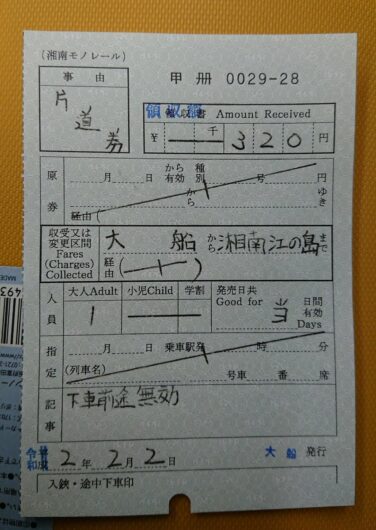 (湘南モノレール)
事由
片道券
甲 冊 0029-28
領収書 Amount Received
￥ 千 320 円
原券
月 日 から有効 種別 号 円
から ゆき
経由(
収受又は変更区間 Fares (Charges) Collected
大船 から 湘南江の島 まで
経由(
人員
大人Adult 小児Child 学割
1
発売日共 Good for 当 日間有効 Days
指定
月 日 乗車駅発 時 分
(列車名) 号車 番 席
記事
下車前途無効
令和 2年 2月 2日 大船 発行
入鋏・途中下車印
MADE